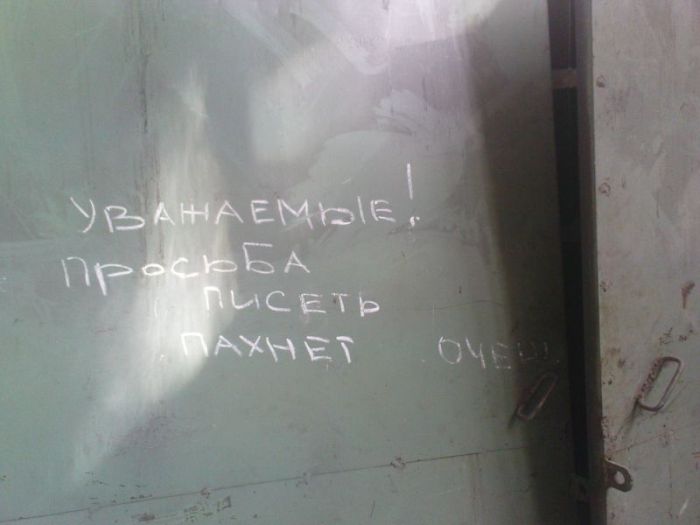 УВАЖАЕМЫЕ!
ПРОСЬБА
ПИСЕТЬ
ПАХНЕТ